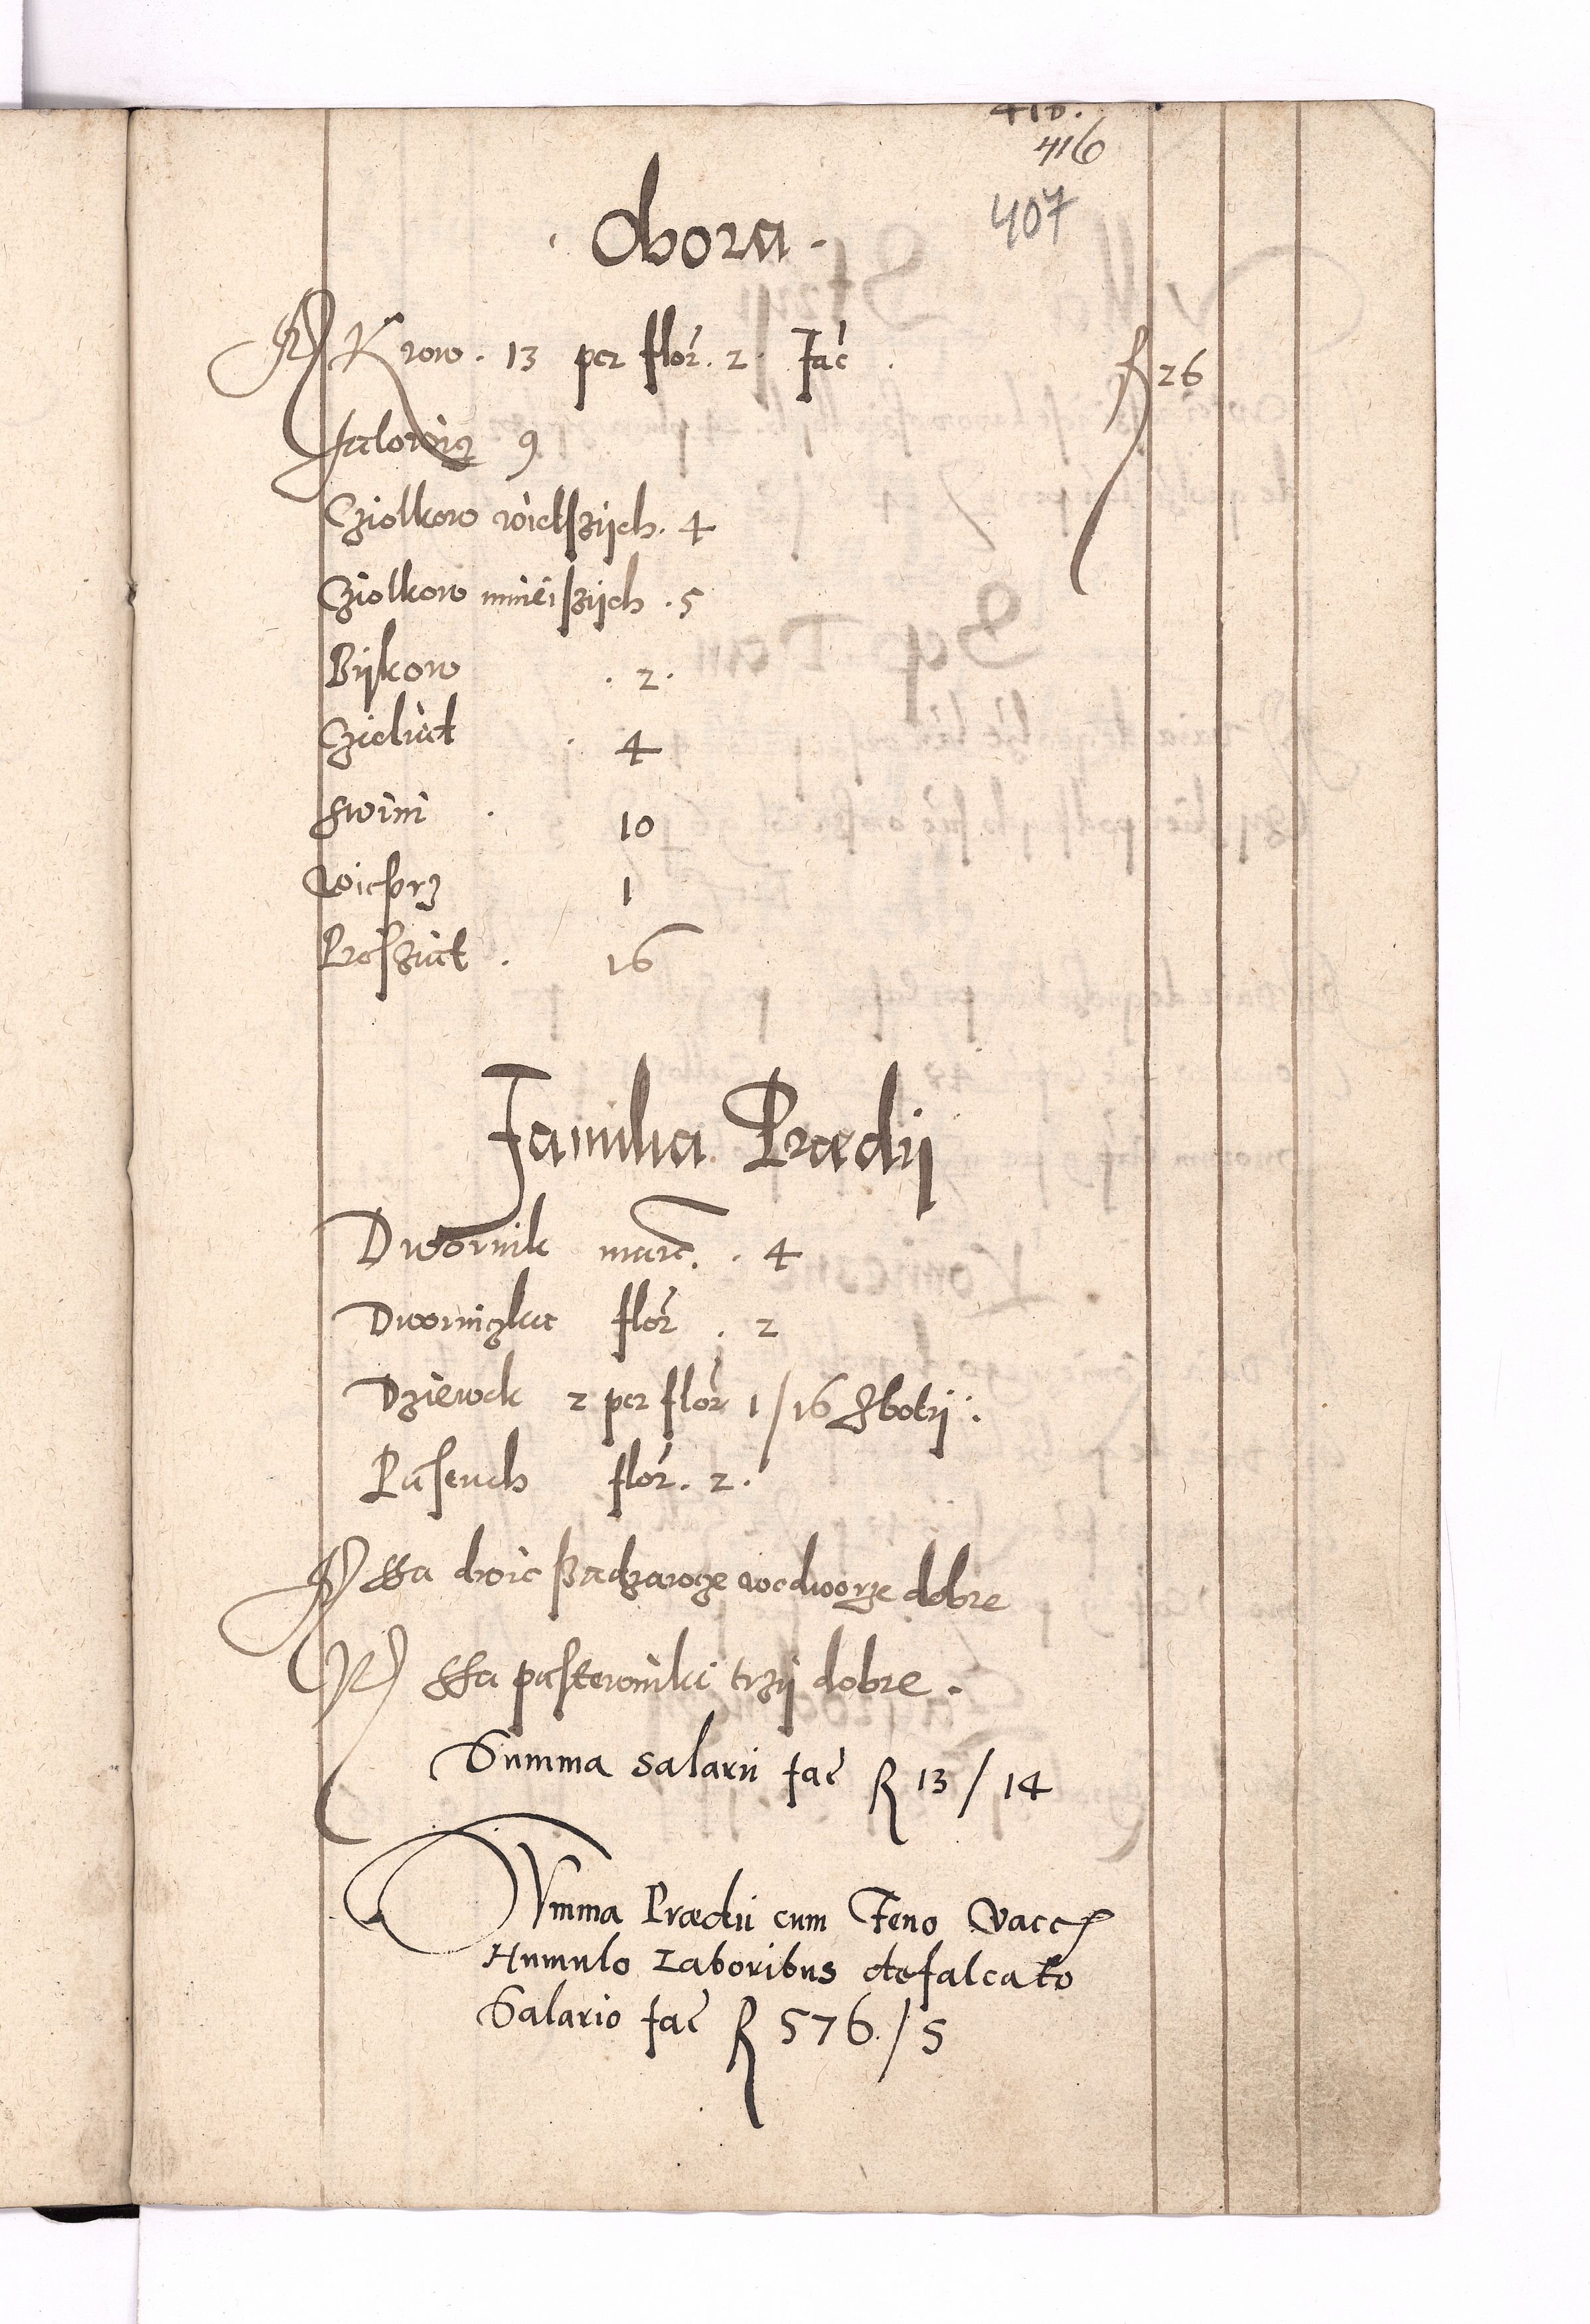 418.
416
407
Obora
Krow. 13 per flor. 2. Fac. R 26
Jalowicz 9
Cziolkow wietszijch. 4
Cziolkow mnieiszijch. 5
Bijkow . 2.
Czieliat . 4
Swini . 10
Wieprz 1
Prosziat . 16
Familia Prædij
Dwornik marc. . 4
Dworniczka flor . 2
Dziewek 2 per flor 1/16 Zbotij.
Pasench flor. 2.
Ssa dwie Sadzawcze wedworze dobre
Ssa pasterniki trzij dobre.
Summa salarii fac R 13/14
Summa Prædii cum Feno Vacc
Humulo Laboribus defalcato
Salario fac R 576./5